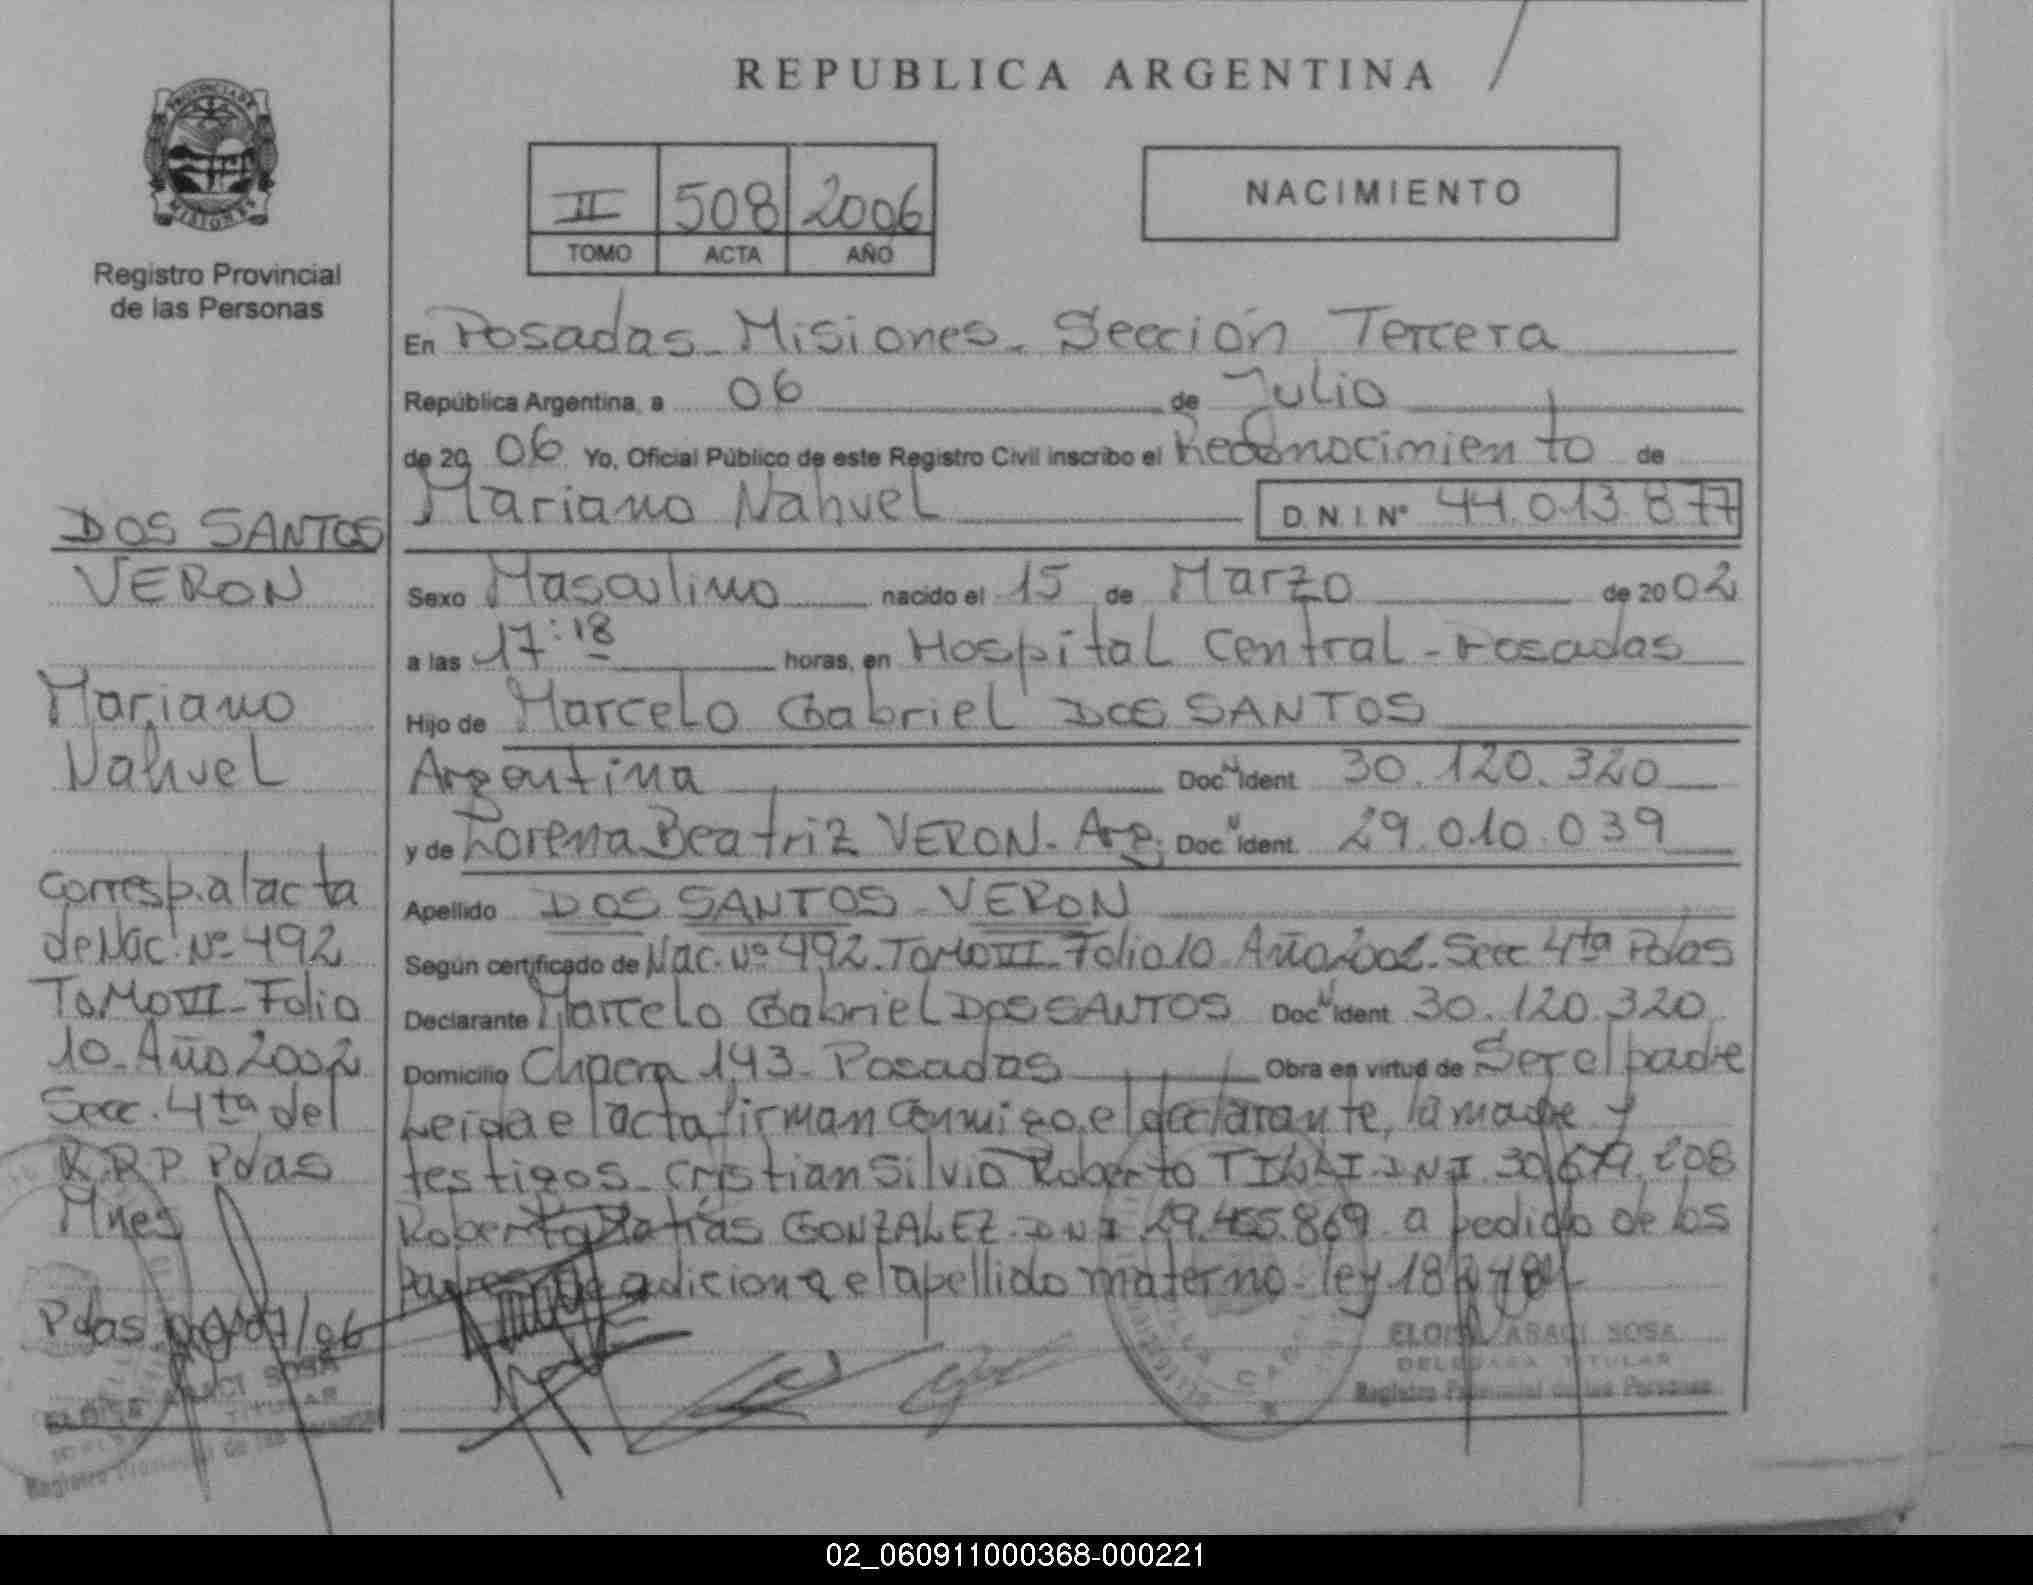 REPUBLICA ARGENTINA
PROVINCIA DE
MISIONES
Registro Provincial
de las Personas
II 508 2006
TOMO ACTA AÑO
NACIMIENTO
En Posadas - Misiones - Sección Tercera
República Argentina, a 06 de Julio
de 20 06 Yo, Oficial Público de este Registro Civil inscribo el Reconocimiento de
Mariano Nahuel D.N.I. N° 44.013.877
Sexo Masculino nacido el 15 de Marzo de 20 02
a las 17:18 horas, en Hospital Central - Posadas
Hijo de Marcelo Gabriel DOS SANTOS
Argentina Doc N Ident. 30.120.320
y de Lorena Beatriz VERON - Arg. Doc N Ident. 29.010.039
Apellido DOS SANTOS - VERON
Según certificado de Nac. Nº 492. Tomo III - Folio 10 - Año 2002 - Secc 4ta Pdas
Declarante Marcelo Gabriel DOS SANTOS Doc N Ident 30.120.320
Domicilio Chacra 143 - Posadas Obra en virtud de Ser el padre
Leida el acta firman conmigo el declarante, la madre y
testigos - Cristian Silvio Roberto DNI. 30.679.208
Roberto Matías GONZALEZ - DNI 29.455.869 a pedido de los
padres se adiciona el apellido materno - ley 18248
ELOISA ARACI SOSA
DELEGADA TITULAR
Registro Provincial de las Personas
DOS SANTOS
VERON
Mariano
Nahuel
Corresp. al acta
de Nac. Nº 492
Tomo III - Folio
10 - Año 2002
Secc. 4ta del
R.R.P Pdas
Mnes
Pdas /07/06
ELOISA ARACI SOSA
TITULAR
Registro Provincial de las Personas
02_060911000368-000221